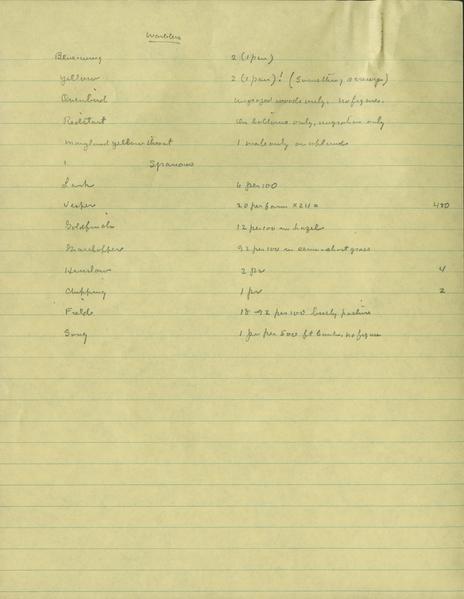 Warblers
Bluewing 2 (1 pair)
Yellow 2 (1 pair)! (Something strange)
Ovenbird ungrazed woods only, no figures.
Redstart On bottoms only, migration only
Maryland yellow throat 1 male only on uplands
Sparrows
Lark 6 per 100
Vesper 20 per farm x 24 = 480
Goldfinch 12 per 100 in hazel
Grasshopper 92 per 100 in short grass
Henslow 2 prs 4
Chipping 1 pr 2
Field 18-92 per 100 brushy pasture
Song 1 pair per 500 ft no figures